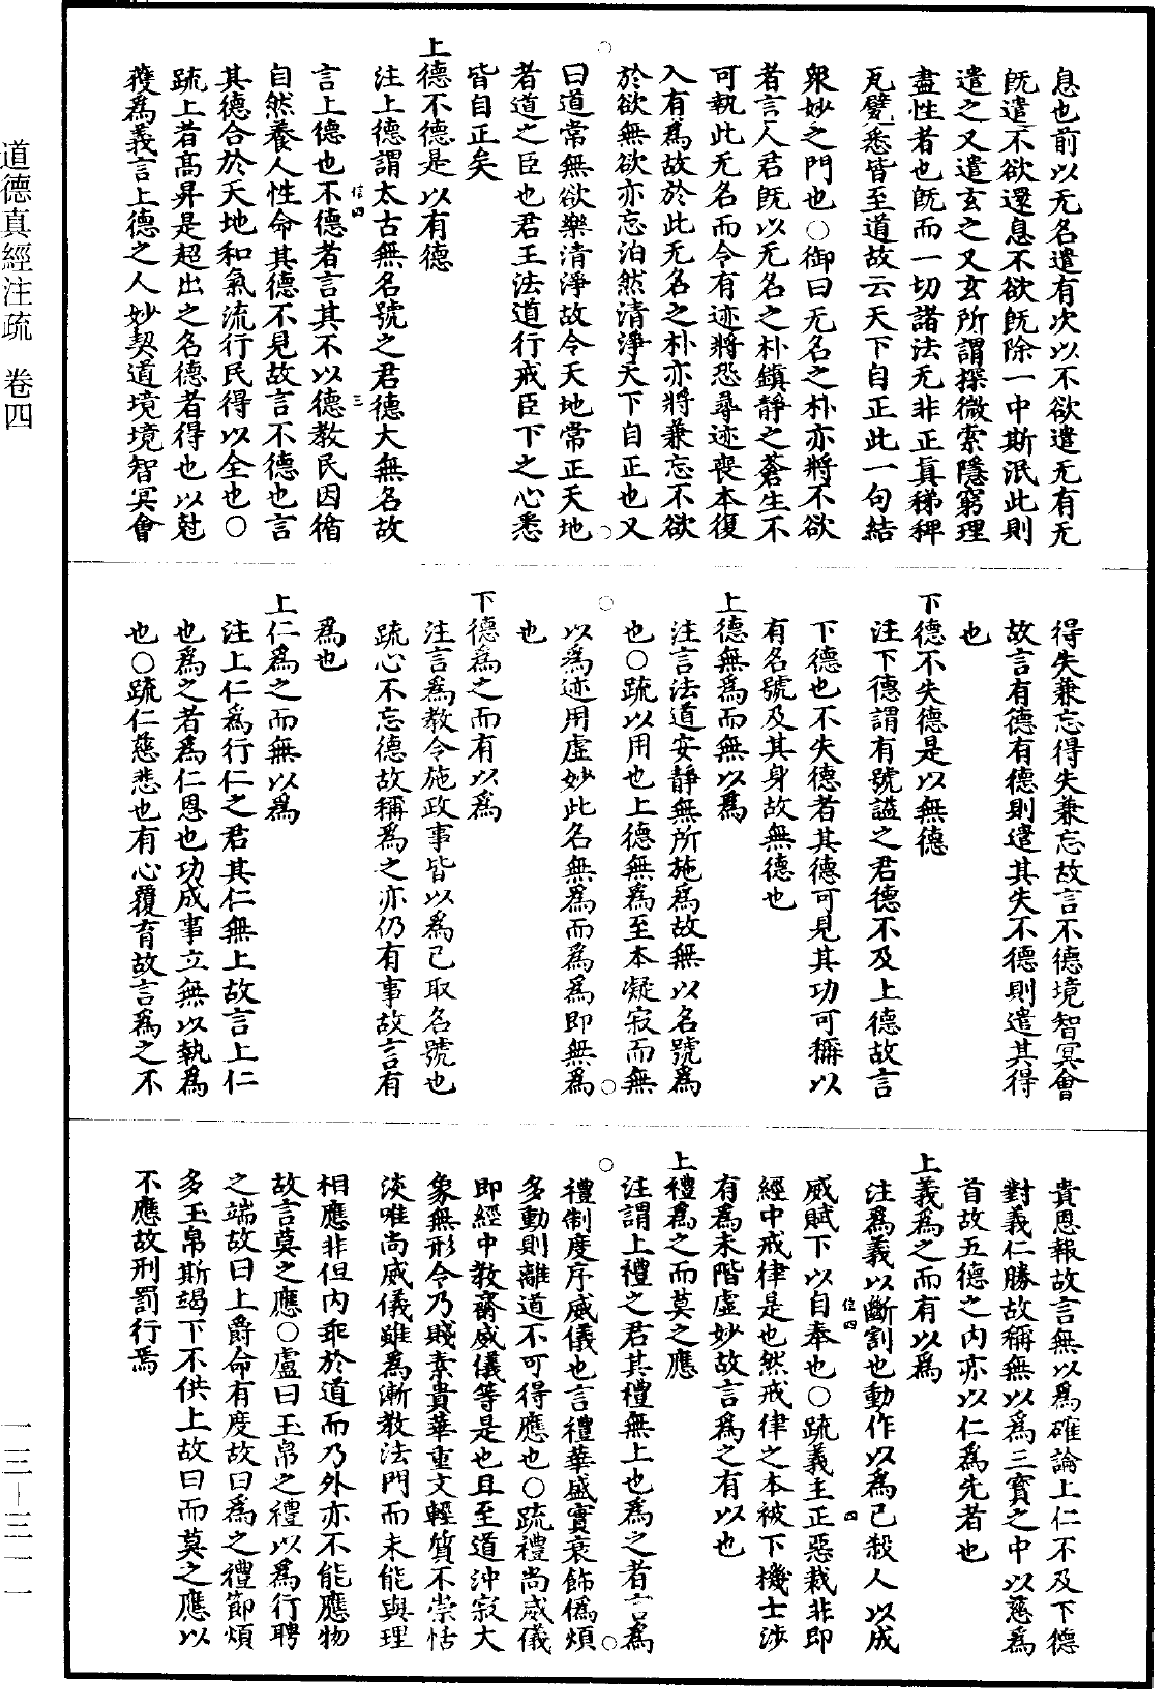 息也前以无名遣有次以不欲遣无有无
既遣不欲還息不欲既除一中斯泯此則
遣之又遣玄之又玄所謂探微索隱窮理
盡性者也既而一切諸法无非正真稊稗
瓦甓悉皆至道故云天下自正此一句結
衆妙之門也○御曰无名之朴亦將不欲
者言人君既以无名之朴鎮靜之蒼生不
可執此无名而令有迹將恐尋迹喪本復
入有為故於此无名之朴亦將兼忘不欲
於欲無欲亦忘泊然清淨天下自正也又
曰道常無欲樂清淨故令天地常正天地
者道之臣也君王法道行戒臣下之心悉
皆自正矣
上德不德是以有德
注上德謂太古無名號之君德大無名故
信四 三
言上德也不德者言其不以德教民因循
自然養人性命其德不見故言不德也言
其德合於天地和氣流行民得以全也○
疏上者高昇是超出之名德者得也以尅
獲為義言上德之人妙契道境境智冥會
得失兼忘得失兼忘故言不德境智冥會
故言有德有德則遣其失不德則遣其得
也
下德不失德是以無德
注下德謂有號謚之君德不及上德故言
下德也不失德者其德可見其功可稱以
有名號及其身故無德也
上德無為而無以為
注言法道安靜無所施為故無以名號為
也○疏以用也上德無為至本凝寂而無
以為迹用虛妙此名無為而為為即無為
也
下德為之而有以為
注言為教令施政事皆以為己取名號也
疏心不忘德故稱為之亦仍有事故言有
為也
上仁為之而無以為
注上仁為行仁之君其仁無上故言上仁
也為之者為仁恩也功成事立無以執為
也○疏仁慈悲也有心覆育故言為之不
責恩報故言無以為確論上仁不及下德
對義仁勝故稱無以為三寶之中以慈為
首故五德之內亦以仁為先者也
上義為之而有以為
注為義以斷割也動作以為己殺人以成
信四 四
威賦下以自奉也○疏義主正惡裁非即
經中戒律是也然戒律之本被下機士涉
有為未階虛妙故言為之有以也
上禮為之而莫之應
注謂上禮之君其禮無上也為之者言為
禮制度序威儀也言禮華盛實衰飾偽煩
多動則離道不可得應也○疏禮尚威儀
即經中教齋威儀等是也且至道沖寂大
象無形令乃賤素貴華重文輕質不崇恬
淡唯尚威儀雖為漸教法門而未能與理
相應非但內乖於道而乃外亦不能應物
故言莫之應○盧曰玉帛之禮以為行聘
之端故曰上爵命有度故曰為之禮節煩
多玉帛斯竭下不供上故曰而莫之應以
不應故刑罰行焉
道德真經注疏 卷四
一三－三一一